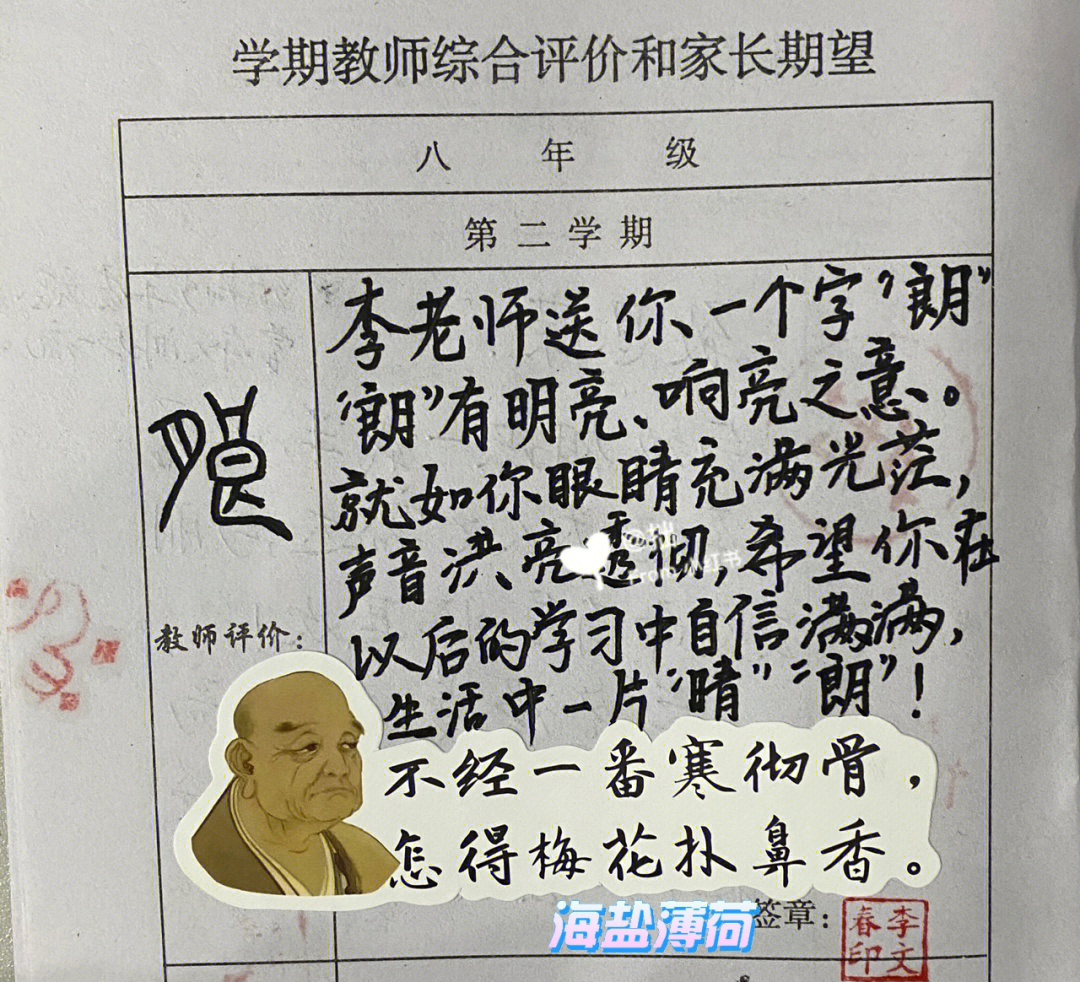 学期教师综合评价和家长期望
八年级
第二学期
李老师送你一个字“朗”
“朗”有明亮、响亮之意。
就如你眼睛充满光茫，
声音洪亮透彻，希望你在
以后的学习中自信满满，
生活中一片“晴”“朗”！
教师评价：
不经一番寒彻骨，
怎得梅花扑鼻香。
签章：
李文春印
海盐薄荷